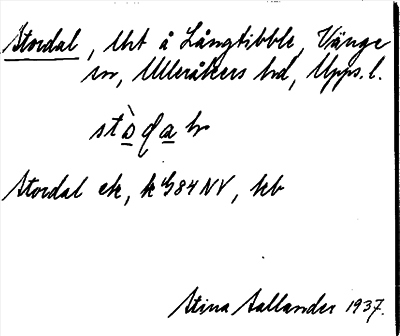 Stordal, Urt å Långtibble, Vänge
sn, Ulleråkers hd, Upps. l.
Stordal ek, k 4/3 84 NV, kb
Stina Sallander 1937.